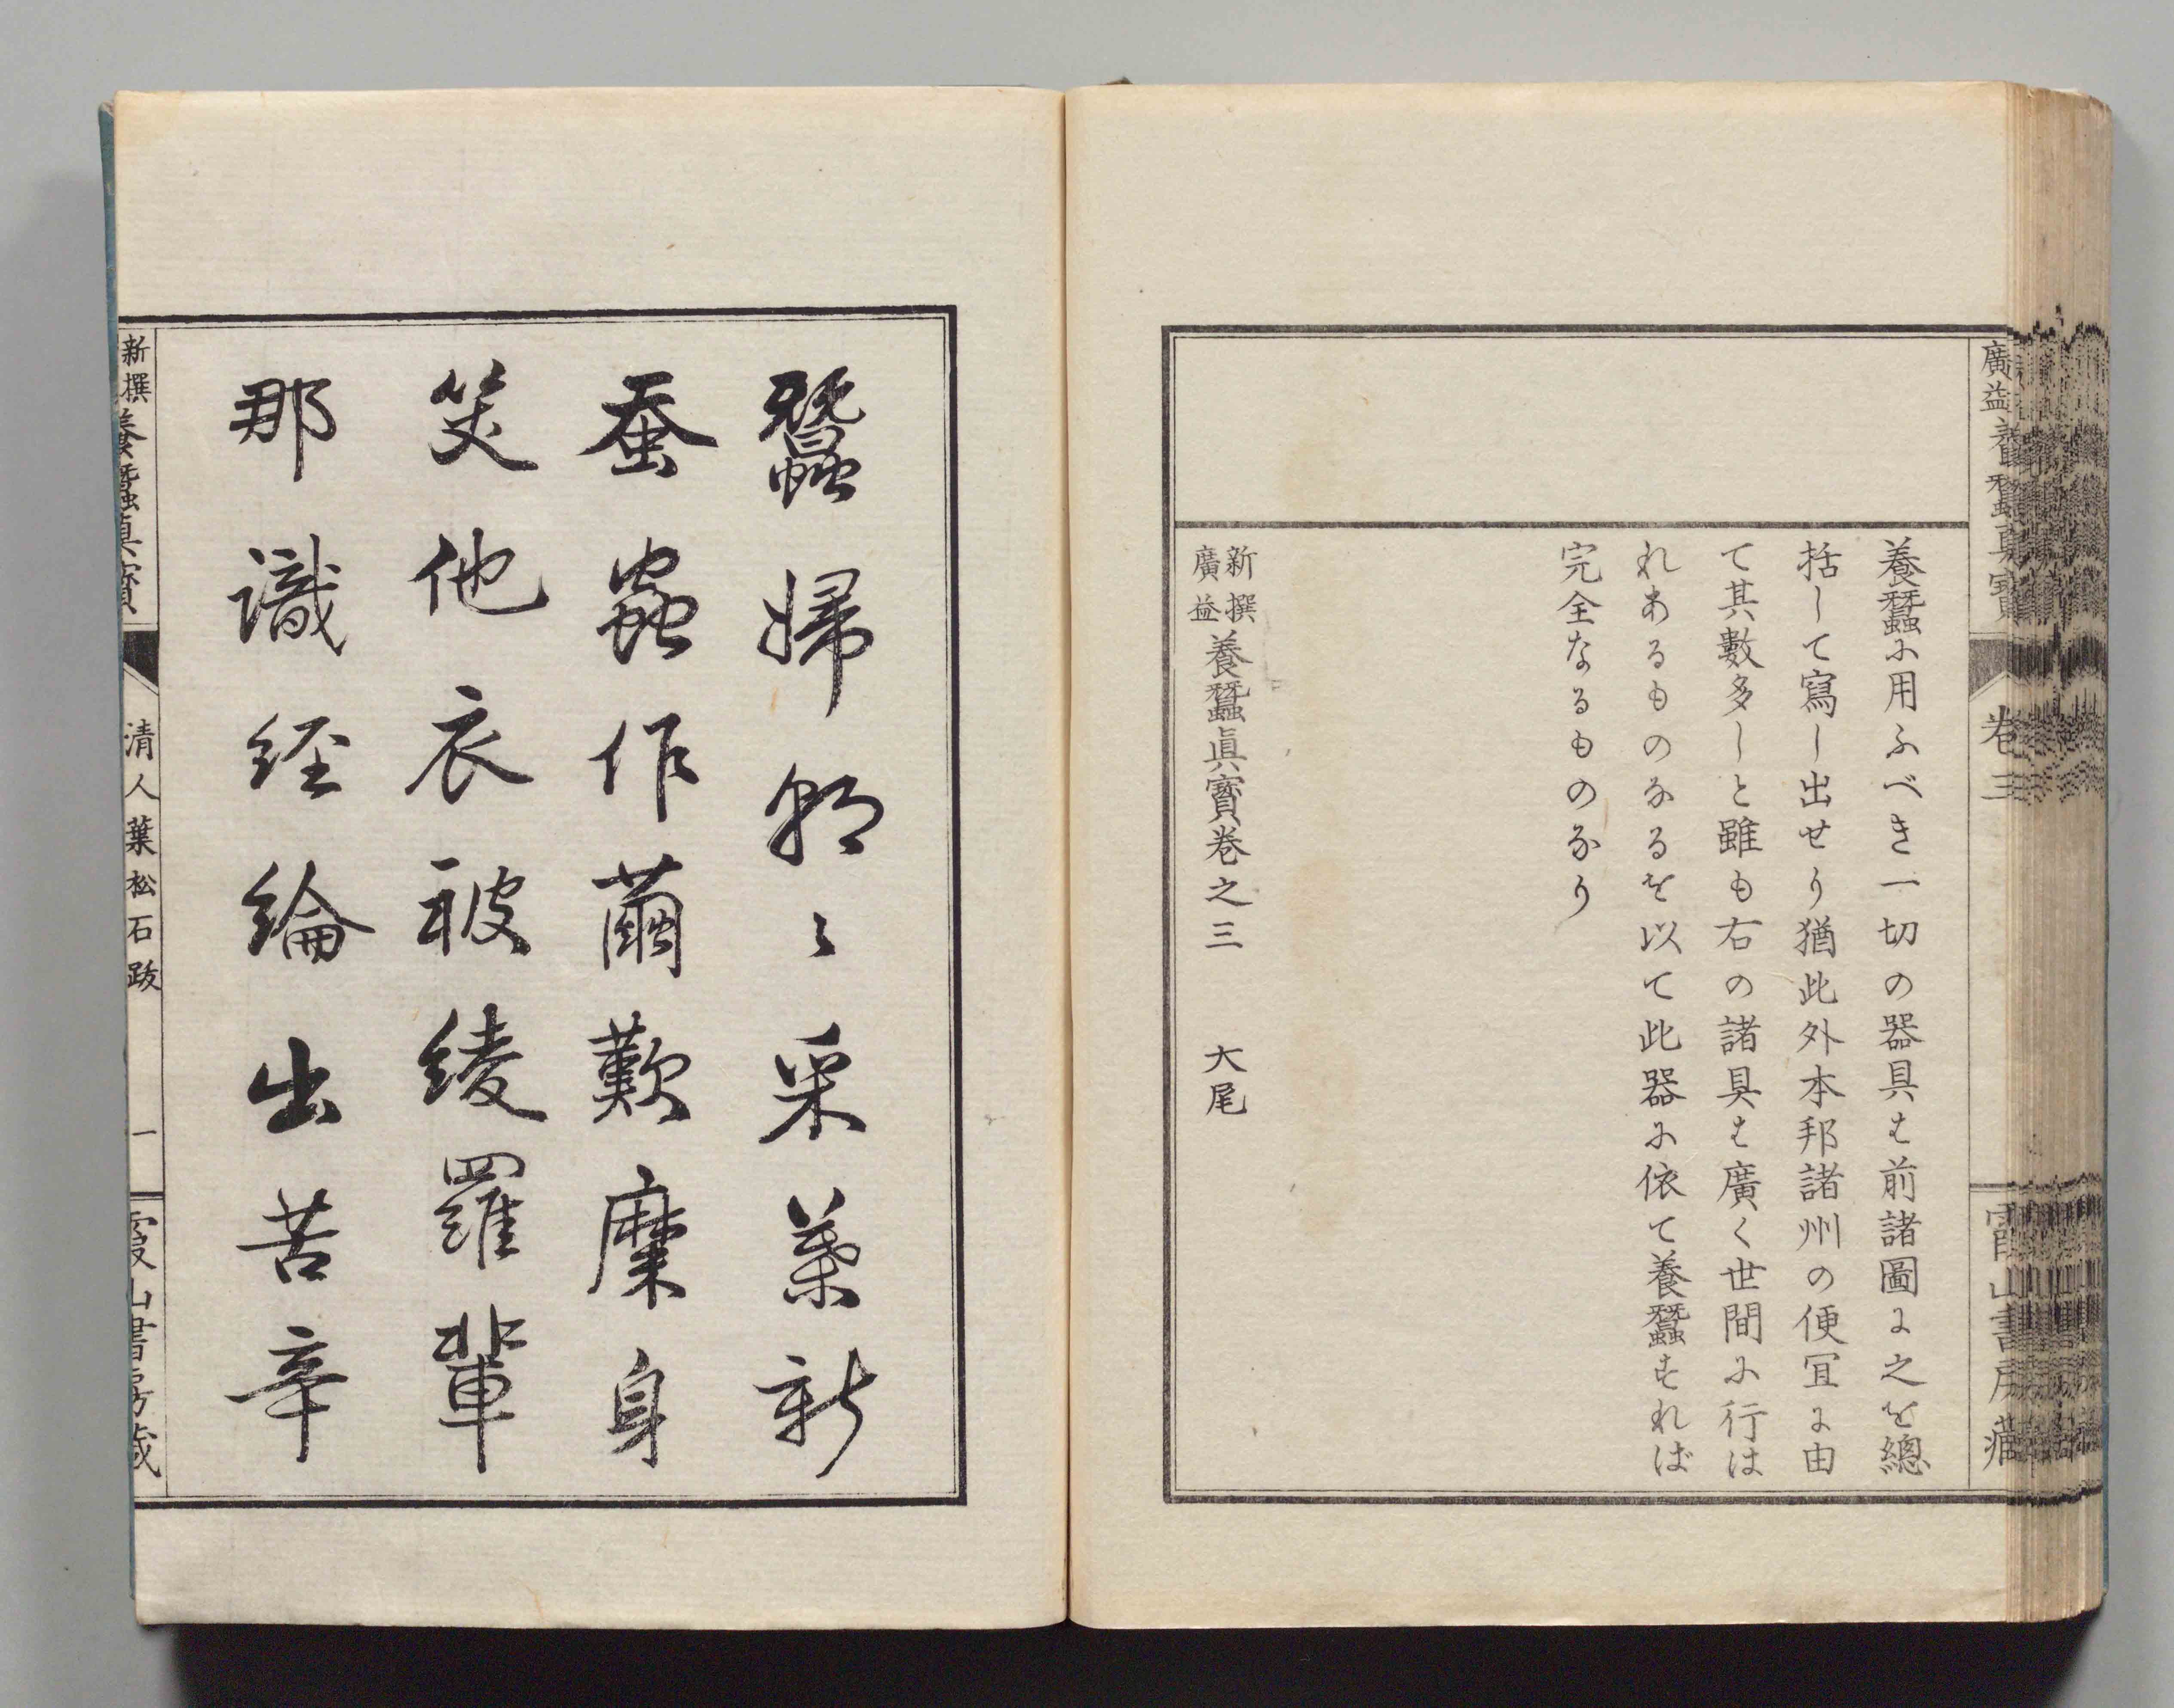 廣益養蠶眞寶 卷三 霞山書房藏
養蠶に用ふべき一切の器具は前諸圖に之を總
括して寫し出せり猶此外本邦諸州の便冝に由
て其數多しと雖も右の諸具は廣く世間に行は
れあるものなるを以て此器に依て養蠶すれば
完全なるものなり
新撰廣益養蠶眞寶卷之三 大尾
蠶婦朝〻采葉新
蚕蟲作繭歎糜身
笑他衣被綾羅輩
那識経綸出苦辛
新撰養蠶眞寶 清人葉松石跋 一 霞山書房藏